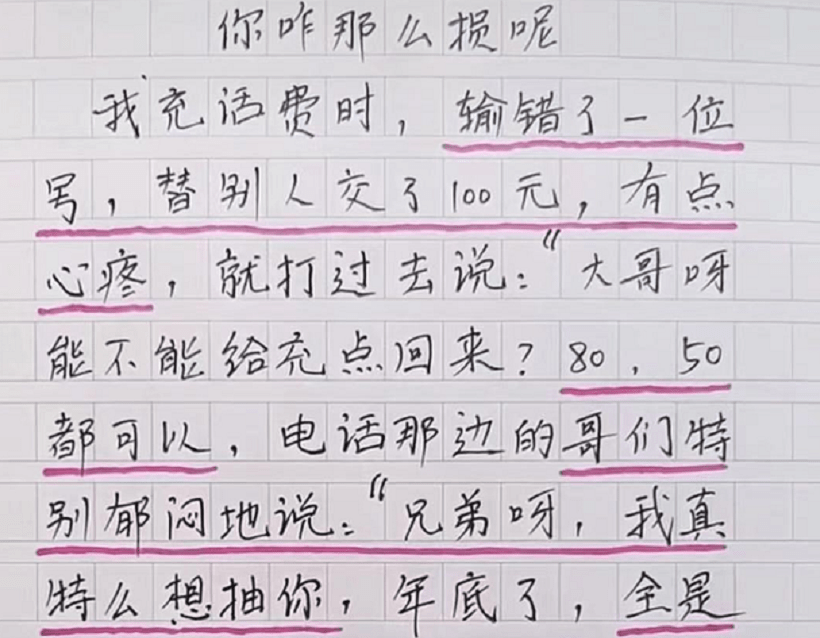 你咋那么损呢
我充话费时，输错了一位
号，替别人交了100元，有点
心疼，就打过去说："大哥呀
能不能给充点回来？80，50
都可以，电话那边的哥们特
别郁闷地说："兄弟呀，我真
特么想抽你，年底了，全是